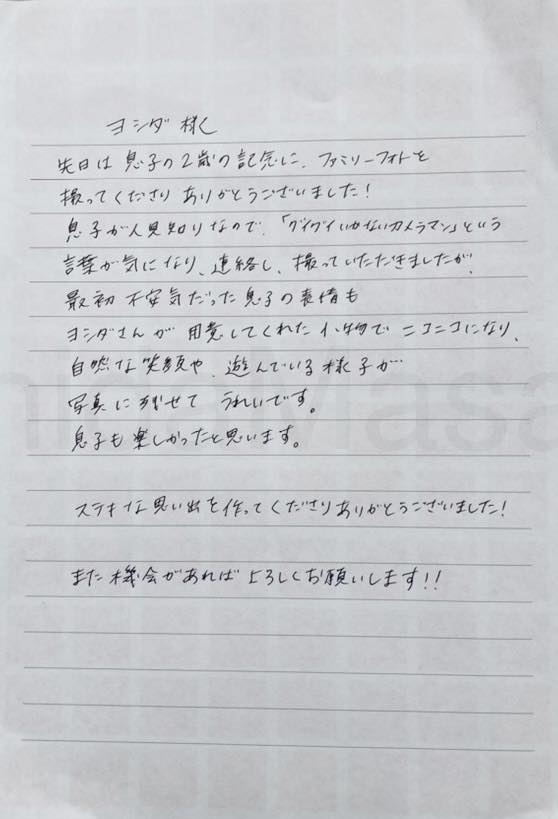 ヨシダ 様
先日は 息子の2歳の記念に、ファミリーフォトを
撮ってくださり ありがとうございました!
息子が人見知りなので、「グイグイいかないカメラマン」という
言葉が気になり、連絡し、撮っていただきましたが、
最初 不安気だった息子の表情も
ヨシダさんが 用意してくれた 小物で ニコニコになり、
自然な笑顔や、遊んでいる様子が
写真に残せて うれしいです。
息子も楽しかったと思います。
ステキな思い出を作ってくださりありがとうございました!
また機会があれば よろしくお願いします!!